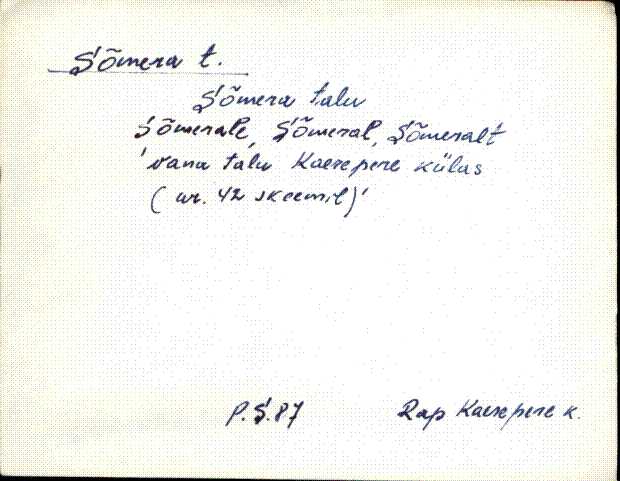 Sõmera t.
Sõmera talu
Sõmerale, Sõmeral, Sõmeralt
'vana talu Kaerepere külas
(nr. 42 skeemil)'
P.S.87 Rap Kaerepere k.